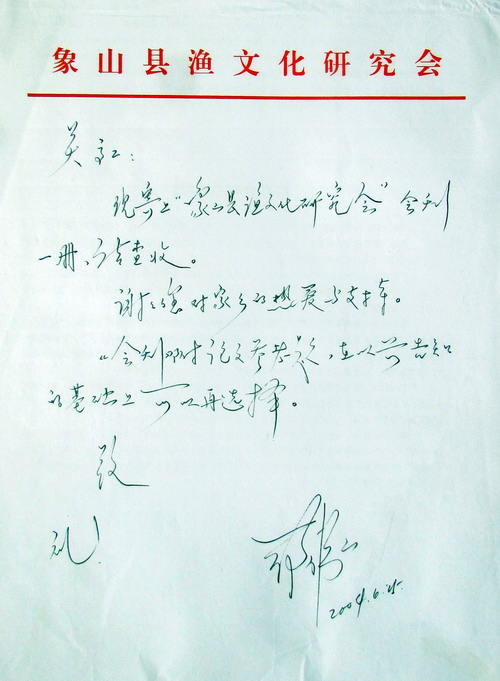 象山县渔文化研究会
关红：
现寄上“象山县渔文化研究会”会刊
一册，请查收。
谢谢您对家乡的热爱与支持。
会刊附论文参考题，在以前告知
的基础上可以再选择。
致
礼！
2004.6.25.